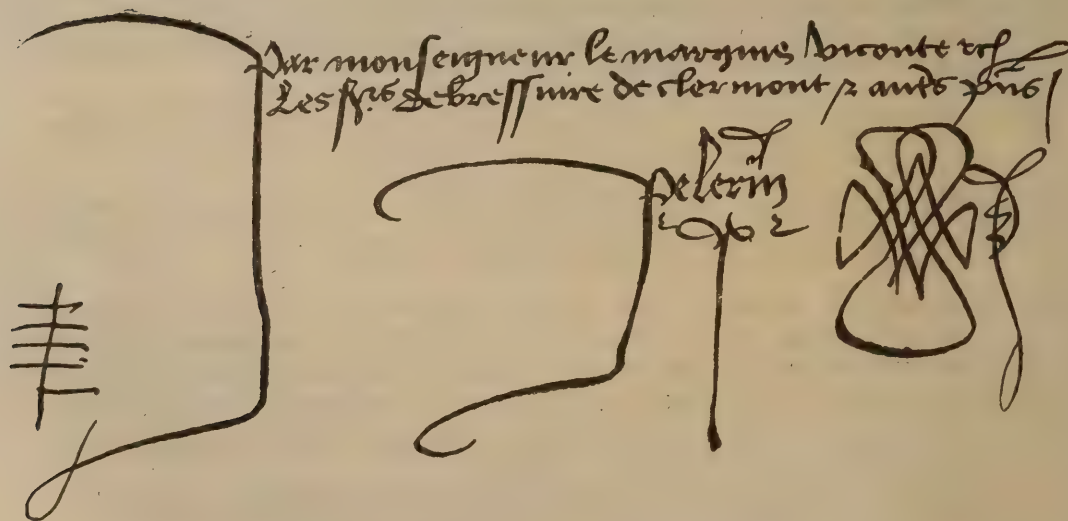 Par monseigneur le marquis viconte etc
Les srs de bressuire de clermont et autrs pns
pelerin